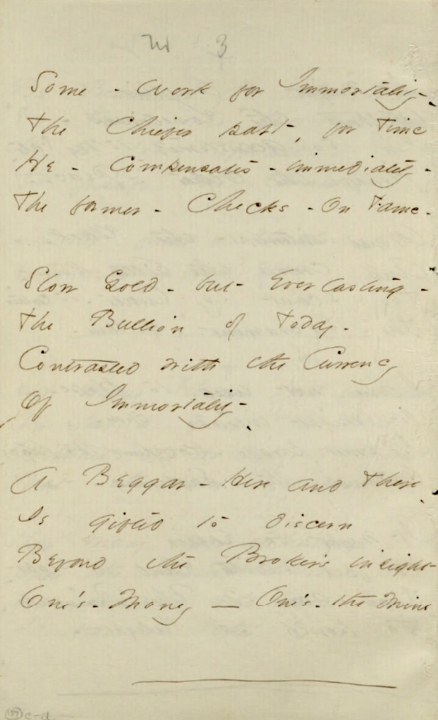 3
Some - Work for Immortality -
The Chiefer part, for Time
He - Compensates - immediately -
The former - Checks - On Fame -
Slow Gold - but Everlasting -
The Bullion of Today -
Contrasted with the Currency
Of Immortality -
A Beggar - Here and There
Is gifted to discern
Beyond the Broker's insight
One's - Money - One's - the Mine